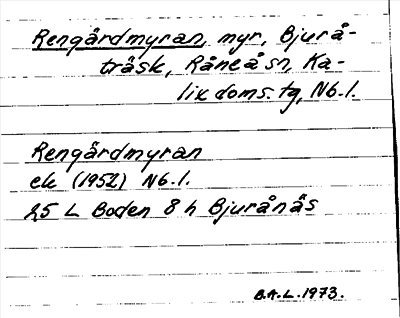 Rengårdmyran, myr, Bjurå-
träsk, Råneå sn, Ka-
lix doms. tg, Nb. l.
Rengårdmyran
ek (1952) Nb. l.
25 L Boden 8 h Bjurånäs
B.A.L. 1973.